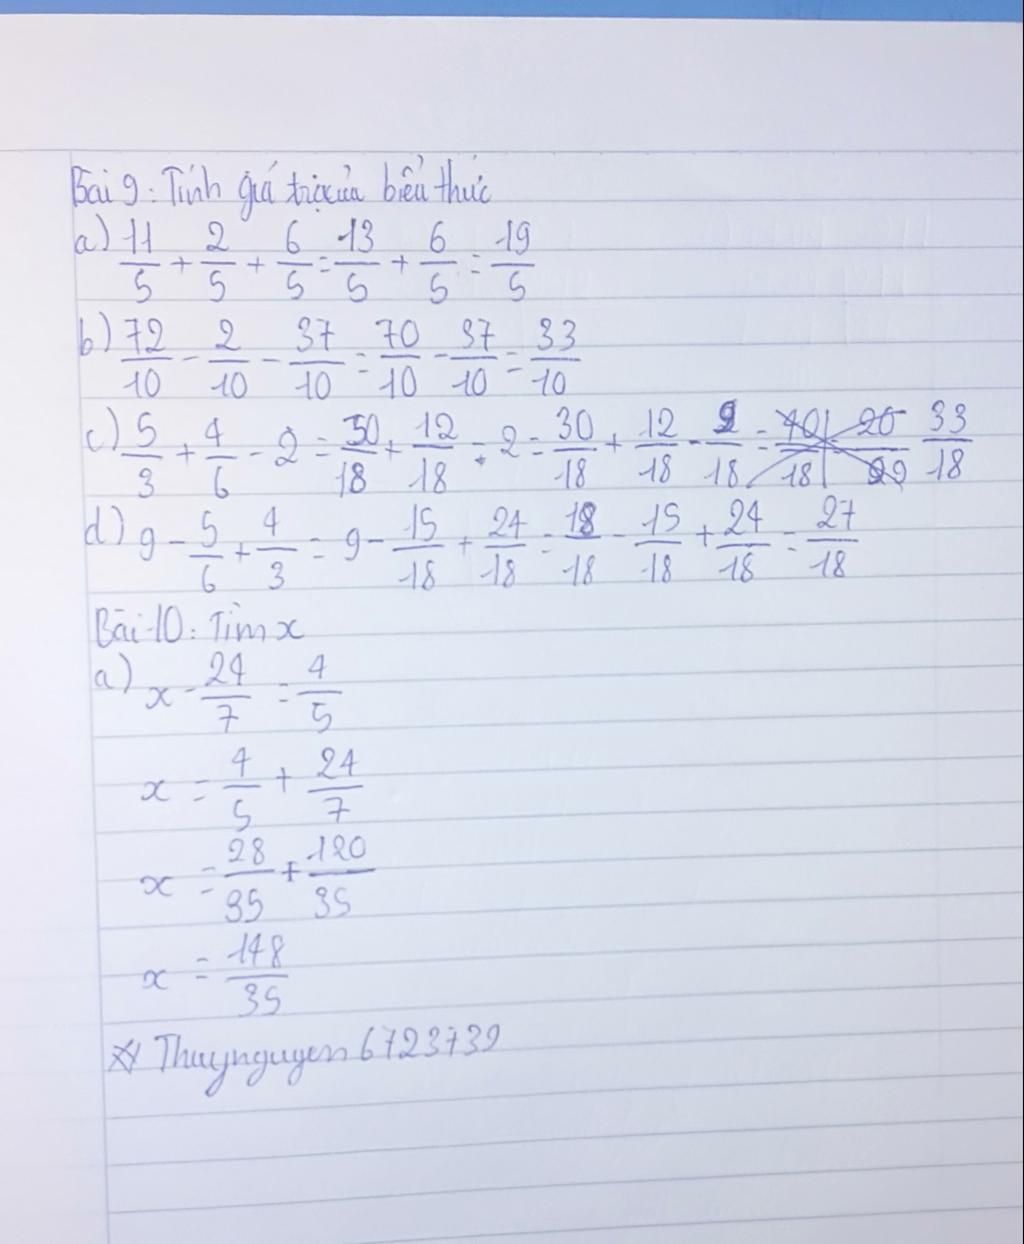 Bài 9: Tính giá trị của biểu thức
a) 11/5 + 2/5 + 6/5 = 13/5 + 6/5 = 19/5
b) 72/10 - 2/10 - 37/10 = 70/10 - 37/10 = 33/10
c) 5/3 + 4/6 - 2 = 30/18 + 12/18 - 2 = 30/18 + 12/18 - 9/18 = 33/18
d) 9 - 5/6 + 4/3 = 9 - 15/18 + 24/18 = 18/18 - 15/18 + 24/18 = 27/18
Bài 10: Tìm x
a) x - 24/7 = 4/5
x = 4/5 + 24/7
x = 28/35 + 120/35
x = 148/35
Thuynguyen6723739